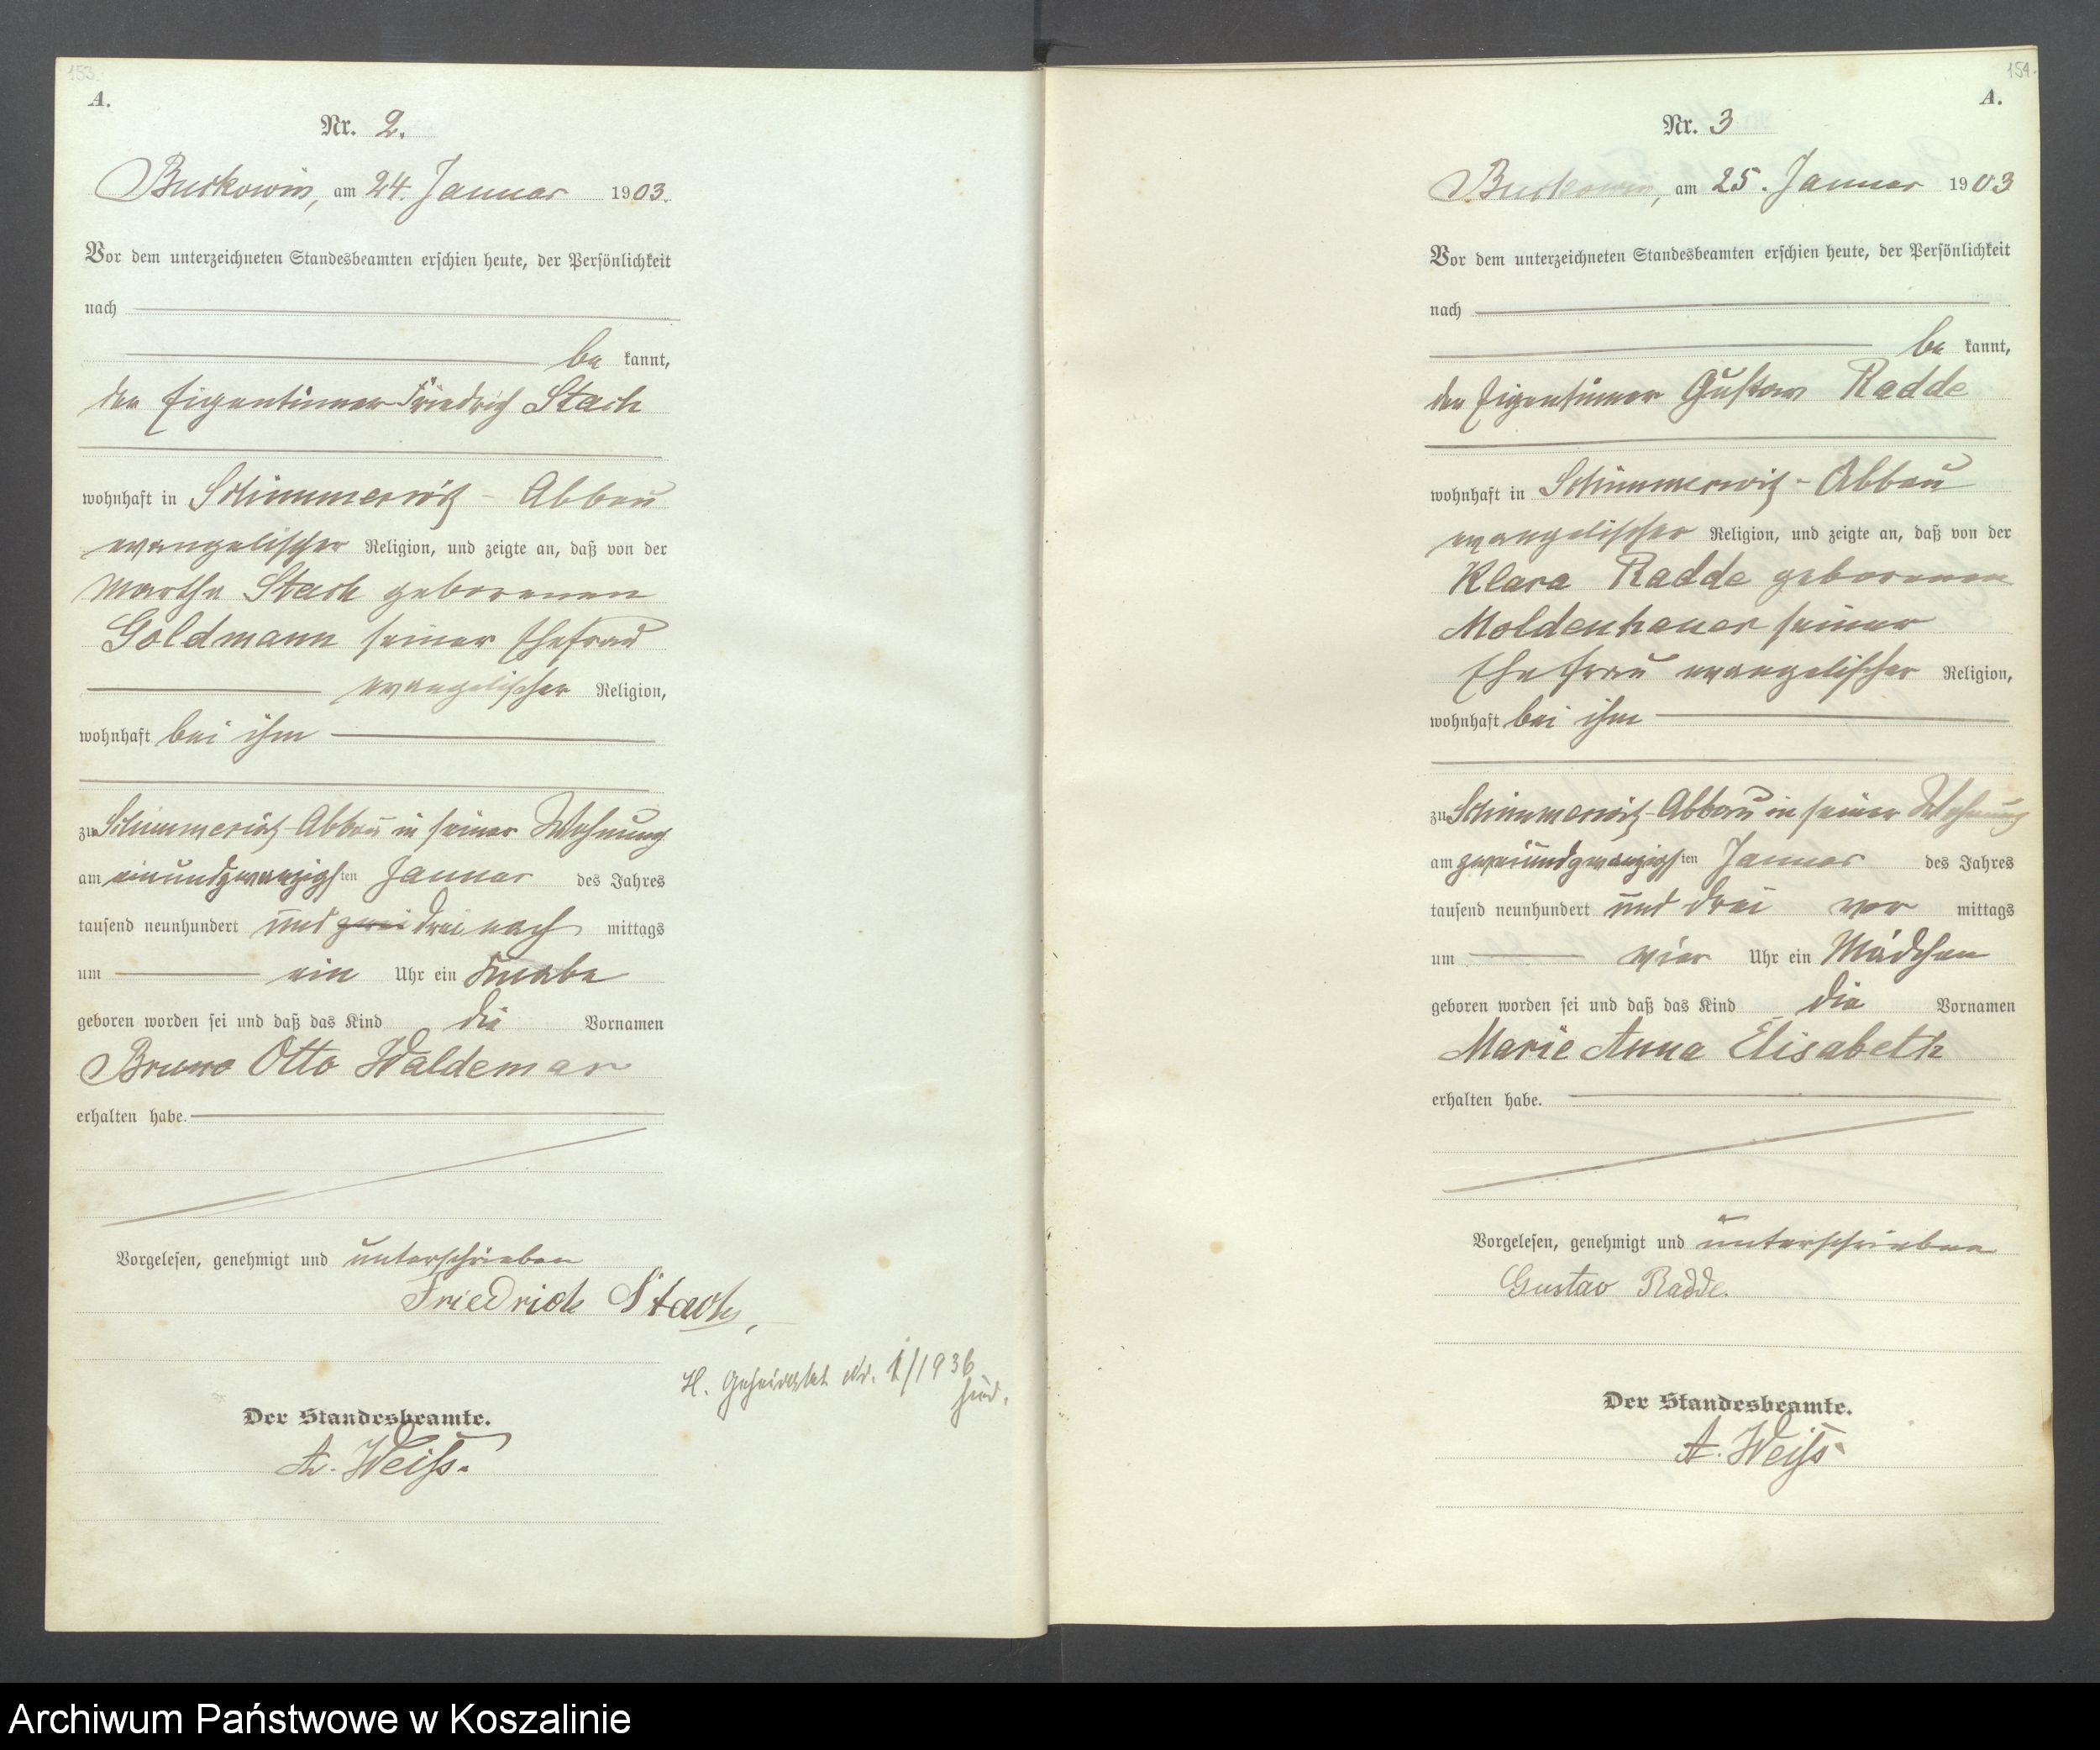 153.
A.
Nr. 2.
Buckowin, am 24. Januar 1903.
Vor dem unterzeichneten Standesbeamten erschien heute, der Persönlichkeit
nach
be kannt,
der Eigentümer Friedrich Stach
wohnhaft in Schimmerwitz - Abbau
evangelischer Religion, und zeigte an, daß von der
Martha Stach geborenen
Goldmann seiner Ehefrau
evangelischer Religion,
wohnhaft bei ihm
zu Schimmerwitz-Abbau in seiner Wohnung
am einundzwanzigsten Januar des Jahres
tausend neunhundert und zwei drei nach mittags
um ein Uhr ein Knabe
geboren worden sei und daß das Kind die Vornamen
Bruno Otto Waldemar
erhalten habe.
Vorgelesen, genehmigt und unterschrieben
Friedrich Stach,
H. Geheiratet Nr. 1/1936
Der Standesbeamte.
A. Weiß.
154.
A.
Nr. 3
Buckowin, am 25. Januar 1903
Vor dem unterzeichneten Standesbeamten erschien heute, der Persönlichkeit
nach
be kannt,
der Eigentümer Gustav Radde
wohnhaft in Schimmerwitz - Abbau
evangelischer Religion, und zeigte an, daß von der
Klara Radde geborenen
Moldenhauer seiner
Ehefrau evangelischer Religion,
wohnhaft bei ihm
zu Schimmerwitz-Abbau in seiner Wohnung
am zweiundzwanzigsten Januar des Jahres
tausend neunhundert und drei vor mittags
um vier Uhr ein Mädchen
geboren worden sei und daß das Kind die Vornamen
Marie Anna Elisabeth
erhalten habe.
Vorgelesen, genehmigt und unterschrieben
Gustav Radde.
Der Standesbeamte.
A. Weiß.
Archiwum Państwowe w Koszalinie